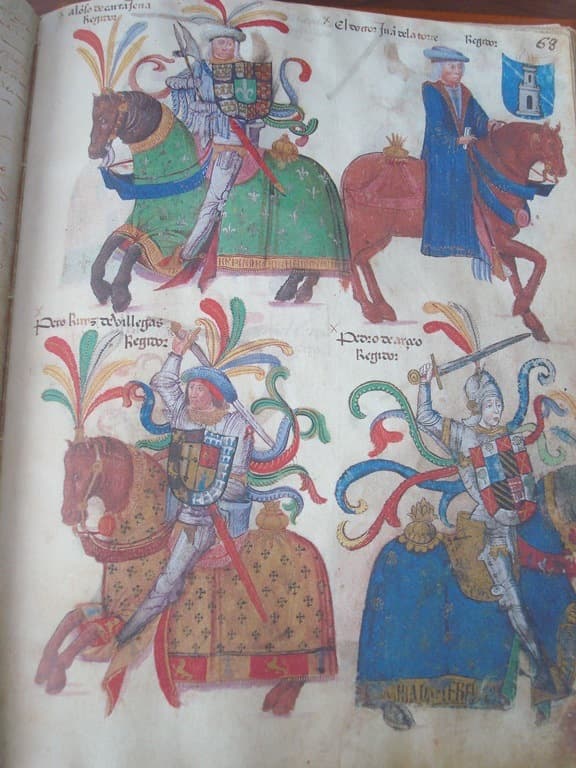 Alõso de cartajena
Regidor
El dottor Juã de la torre Regidor
68
Pero Ruys de Villegas
Regidor
Pedro de arço
Regidor